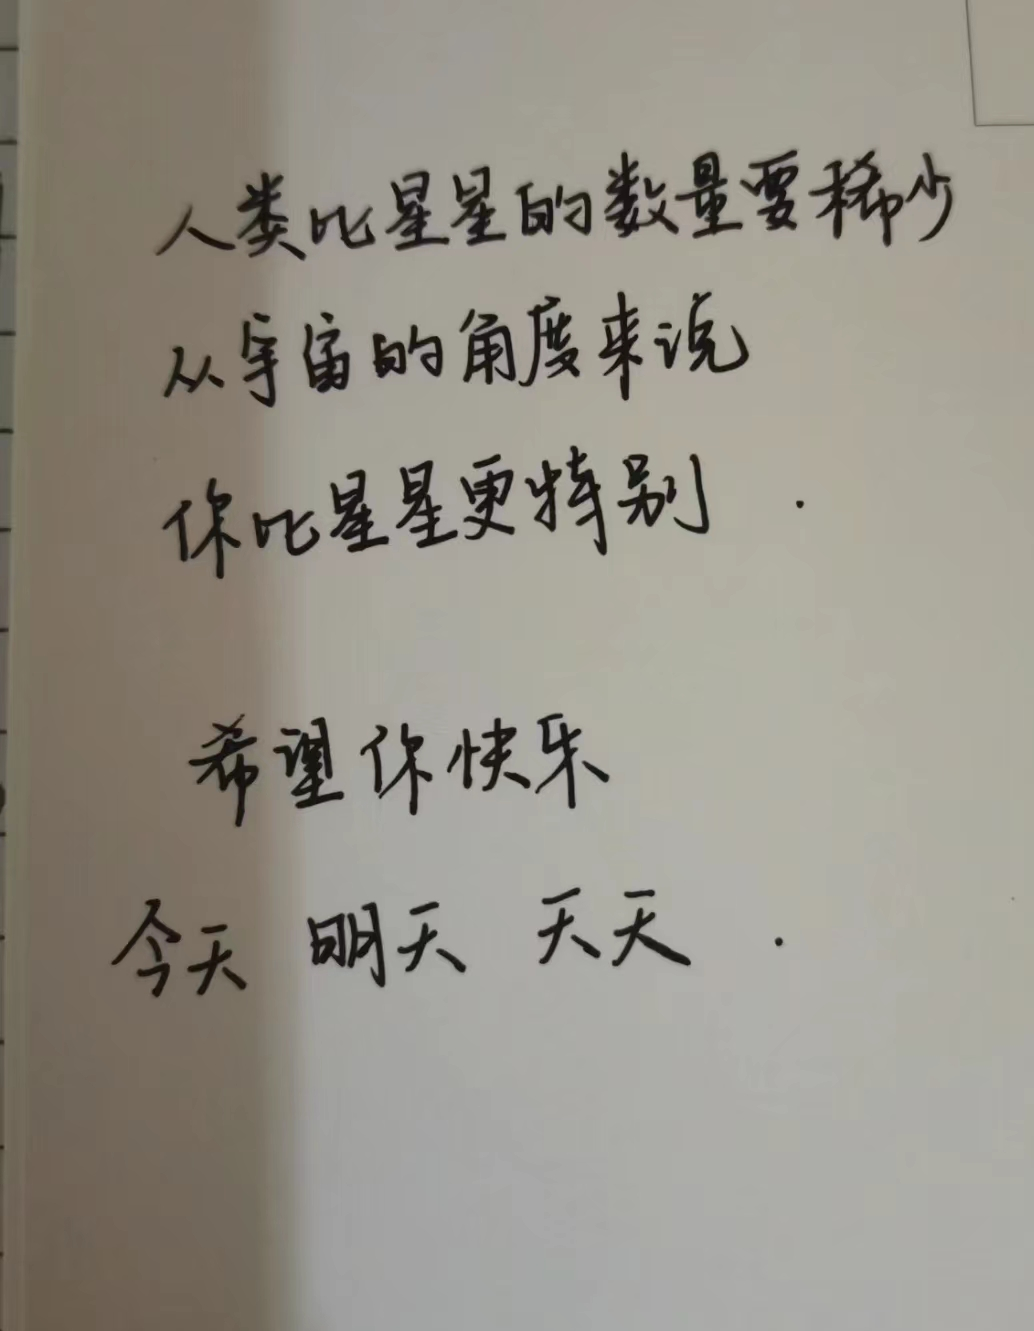 人类比星星的数量要稀少
从宇宙的角度来说
你比星星更特别.
希望你快乐
今天 明天 天天.